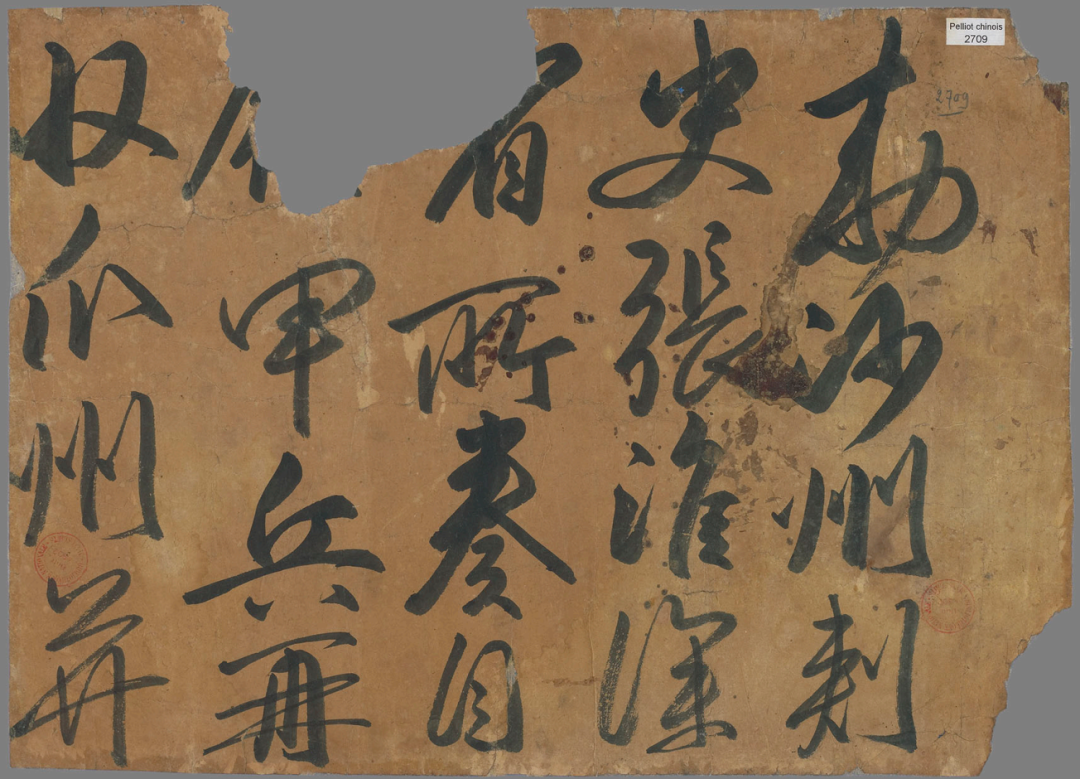 Pelliot chinois
2709
2709
勅沙州刺
史張淮深
省所奏自
甲兵再
收瓜州并